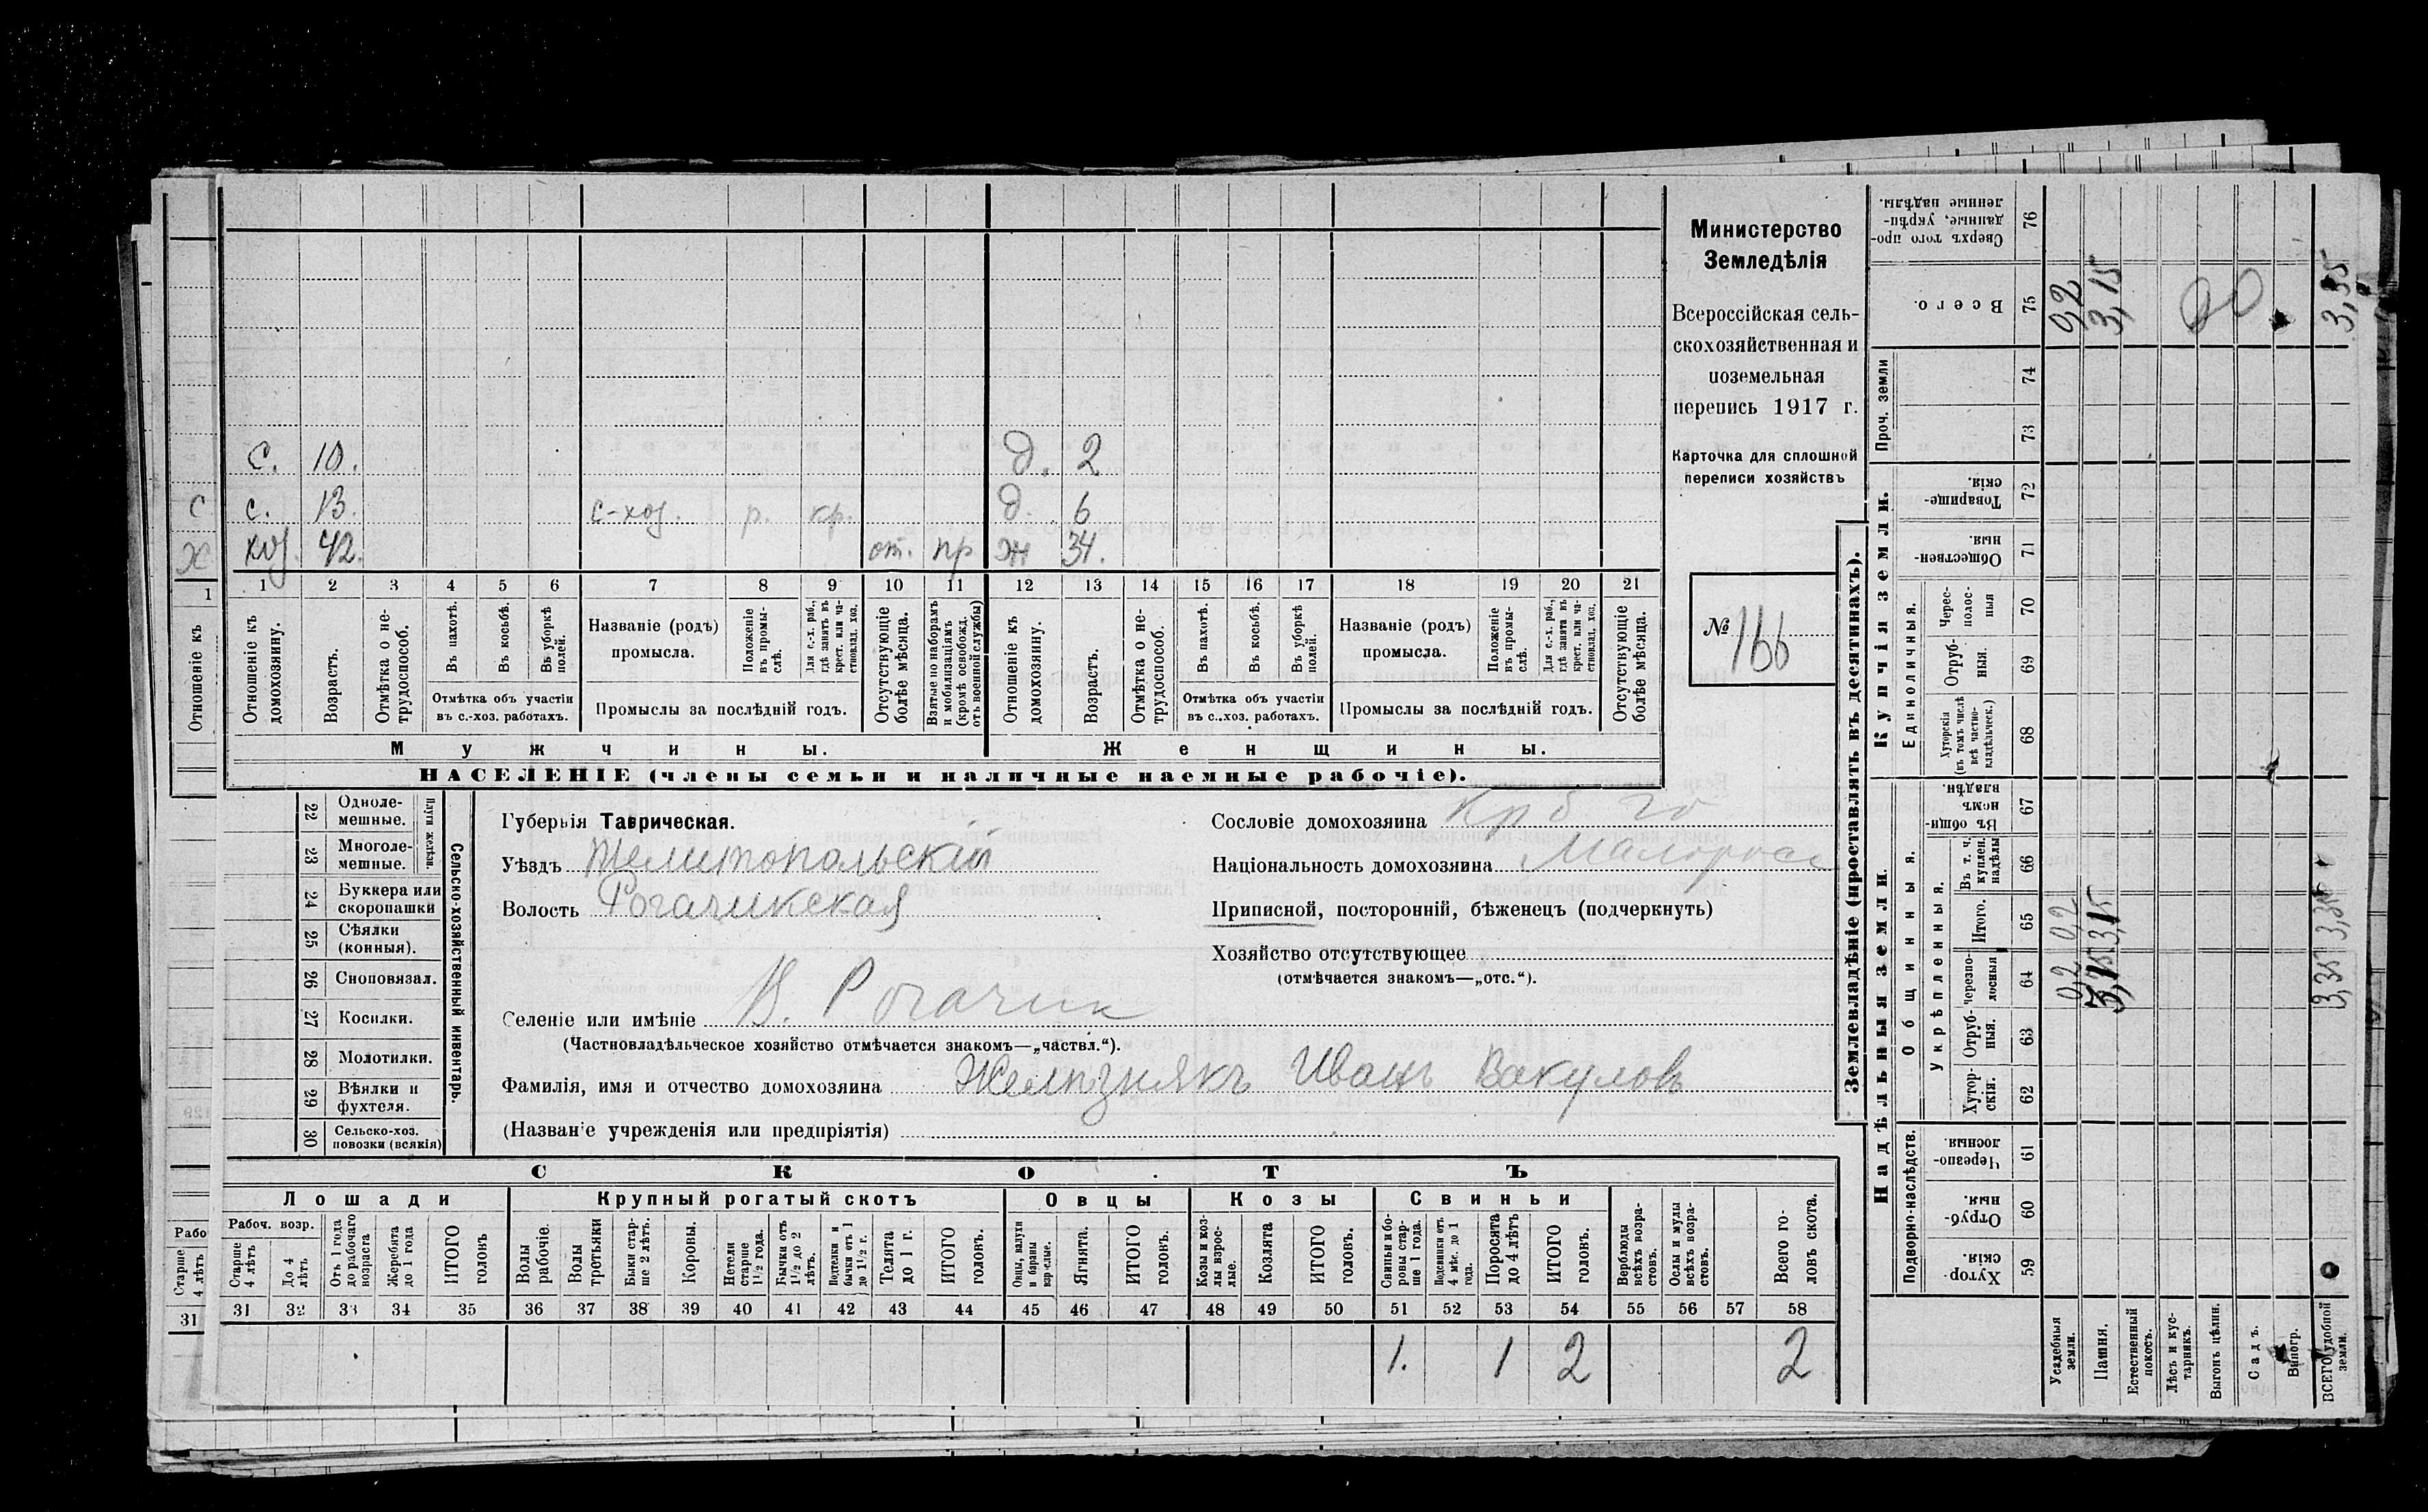 Министерство
Земледѣлія
Всероссійская сель-
скохозяйственная и
поземельная
перепись 1917 г.
Карточка для сплошной
переписи хозяйствъ
№ 166
с. 10. д. 2
с. 13. с-хоз. р. кр. д. 6
хоз. 42. от. пр ж 34.
1 2 3 4 5 6 7 8 9 10 11 12 13 14 15 16 17 18 19 20 21
Отношеніе къ домохозяину.
Возрастъ.
Отмѣтка о не-трудоспособ.
Въ пахотѣ.
Въ косьбѣ.
Въ уборкѣ полей.
Отмѣтка объ участіи
въ с.-хоз. работахъ.
Названіе (родъ)
промысла.
Положеніе въ промы-слѣ.
Для с.-х. раб., гдѣ занятъ въ крест. или ча-стновлад. хоз.
Промыслы за послѣдній годъ.
Отсутствующіе болѣе мѣсяца.
Взятые по наборамъ и мобилизаціямъ (кромѣ освобожд. отъ военной службы)
Отношеніе къ домохозяину.
Возрастъ.
Отмѣтка о не-трудоспособ.
Въ пахотѣ.
Въ косьбѣ.
Въ уборкѣ полей.
Отмѣтка объ участіи
въ с..хоз. работахъ.
Названіе (родъ)
промысла.
Положеніе въ промы-слѣ.
Для с.-х. раб., гдѣ занята въ крест. или ча-стновлад. хоз.
Промыслы за послѣдній годъ.
Отсутствующіе болѣе мѣсяца.
Мужчины. Женщины.
НАСЕЛЕНІЕ (члены семьи и наличные наемные рабочіе).
22 Одноле-мешные.
23 Многоле-мешные.
Плуги желѣзн.
24 Буккера или скоропашки
25 Сѣялки (конныя).
26 Сноповязал.
27 Косилки.
28 Молотилки.
29 Вѣялки и фухтеля.
30 Сельско-хоз. повозки (всякія)
Сельско-хозяйственный инвентарь.
Губернія Таврическая.
Уѣздъ Мелитопольскій
Волость Рогачикская
Селеніе или имѣніе В. Рогачик
(Частновладѣльческое хозяйство отмѣчается знакомъ—„частвл.“).
Фамилія, имя и отчество домохозяина Желѣзнякъ Иванъ Вакуловъ
(Названіе учрежденія или предпріятія)
Сословіе домохозяина
Національность домохозяина Малоросс
Приписной, посторонній, бѣженецъ (подчеркнуть)
Хозяйство отсутствующее
(отмѣчается знакомъ—„отс.“).
СКОТЪ
Лошади Крупный рогатый скотъ Овцы Козы Свиньи
Рабоч. возр.
Старше 4 лѣтъ
До 4 лѣтъ
Отъ 1 года до рабочаго возраста
Жеребята до 1 года
ИТОГО головъ
Волы рабочіе.
Волы третьяки
Быки стар-ше 2 лѣтъ.
Коровы.
Нетели старше 1½ года.
Бычки отъ 1½ до 2 лѣтъ.
Подтелки и бычки отъ 1 до 1½ г.
Телята до 1 г.
ИТОГО головъ.
Овцы, валухи и бараны взрослые.
Ягнята.
ИТОГО головъ.
Козы и коз-лы взрос-лые.
Козлята
ИТОГО головъ.
Свиньи и бо-ровы стар-ше 1 года.
Подсвинки отъ 4 мѣс. до 1 года.
Поросята до 4 лѣтъ
ИТОГО головъ.
Верблюды всѣхъ возра-стовъ.
Ослы и мулы всѣхъ возра-стовъ.
Всего го-ловъ скота.
31 32 33 34 35 36 37 38 39 40 41 42 43 44 45 46 47 48 49 50 51 52 53 54 55 56 57 58
1. 1 2 2
Землевладѣніе (проставлять въ десятинахъ).
Надѣльныя земли. Купчія земли. Проч. земли
Подворно-наслѣдств.
Общинныя.
Укрѣпленныя.
Единоличныя.
59 Хутор-скія.
60 Отруб-ныя.
61 Черезпо-лосныя.
62 Хутор-скія.
63 Отруб-ныя.
64 Черезпо-лосныя
65 Итого.
66 Въ т. ч. куплен. надѣлы
67 Въ общи-номъ владѣн.
68 Хуторскія (въ томъ числѣ всѣ частно-владѣльческ.)
69 Отруб-ныя.
70 Черес-полос-ныя
71 Обществен-ныя.
72 Товарище-скія.
73
74
75 Всего.
76 Сверхъ того про-данные, укрѣп-ленные надѣлы.
Усадебныя земли. 0,2 0,2 0,2
Пашня. 3,15 3,15 3,15
Естественный покосъ.
Лѣсъ и кус-тарникъ.
Выгонъ цѣлин.
Садъ.
Виногр.
ВСЕГО удобной земли. 3,35 3,35 3,35
С
Х
1
Отношеніе къ
Рабо
Старше 4 лѣтъ
31